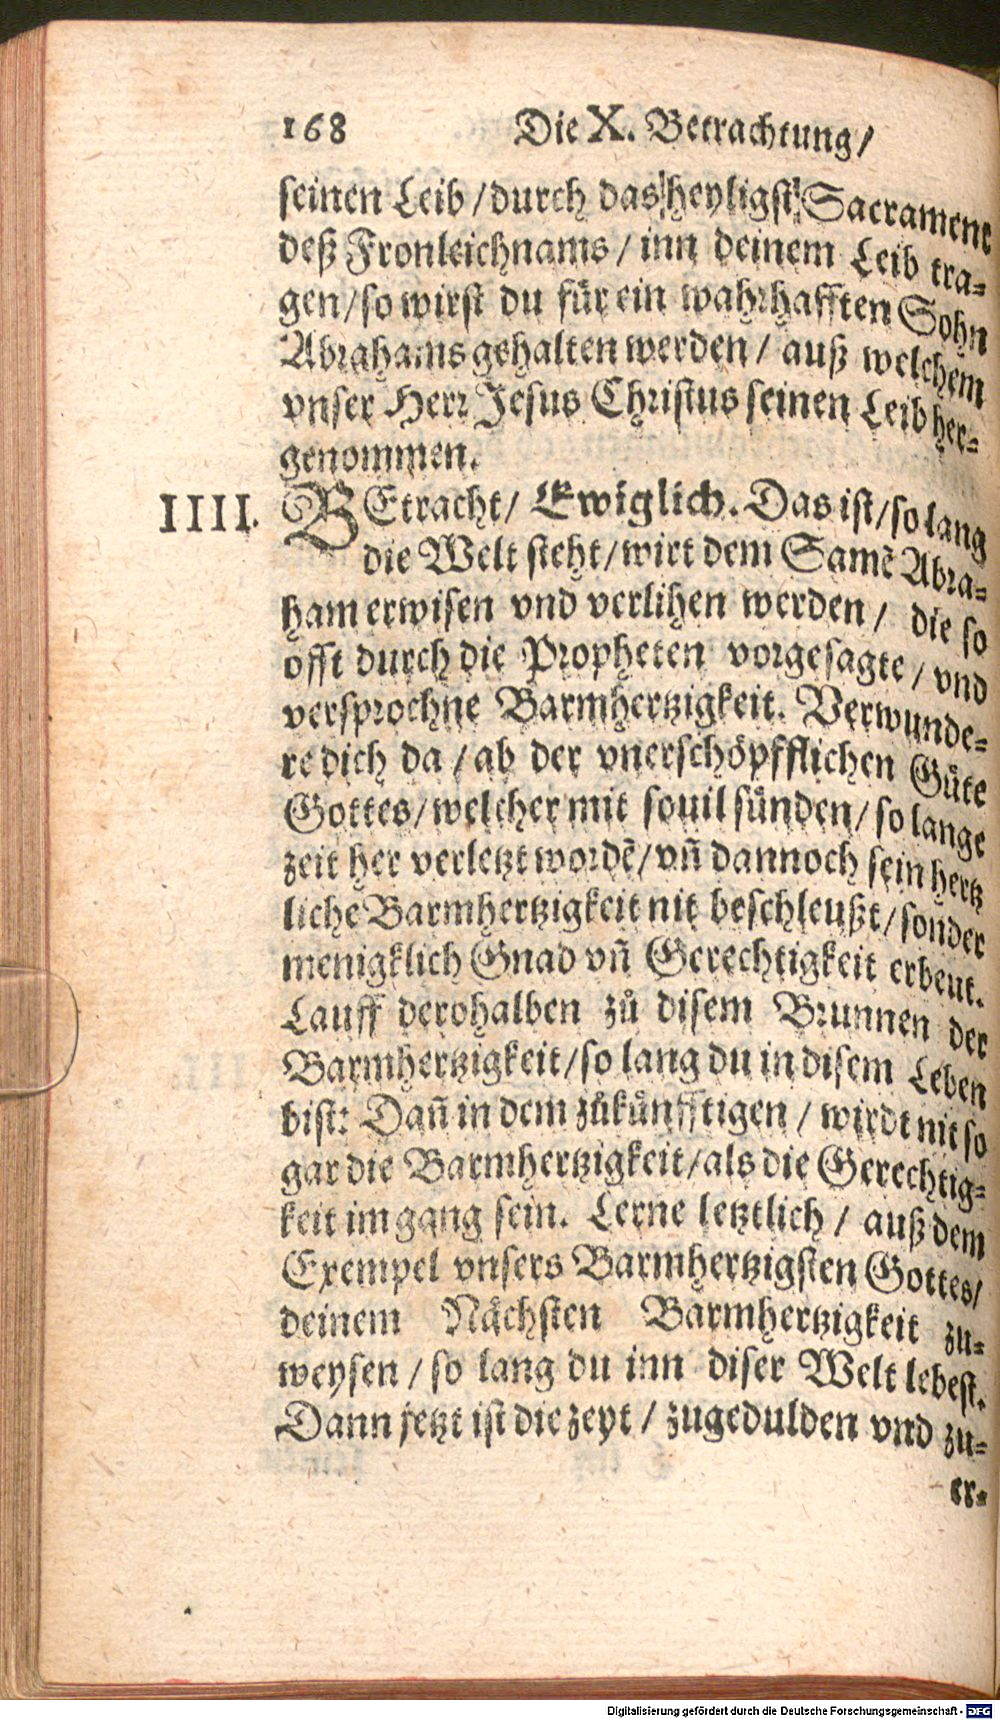 168 Die X. Betrachtung/
seinen Leib/durch das heyligst Sacrament
deß Fronleichnams/ inn deinem Leib tra-
gen/so wirst du für ein wahrhafften Sohn
Abrahams gehalten werden/ auß welchem
vnser Herr Jesus Christus seinen Leib her-
genommen.
IIII. BEtracht/ Ewiglich. Das ist/so lang
die Welt steht/wirt dem Samẽ Abra-
ham erwisen vnd verlihen werden/ die so
offt durch die Propheten vorgesagte/vnd
versprochne Barmhertzigkeit. Verwunde-
re dich da/ab der vnerschöpfflichen Güte
Gottes/welcher mit souil sünden/so lange
zeit her verletzt wordẽ/vñ dannoch sein hertz
liche Barmhertzigkeit nit beschleußt/sonder
menigklich Gnad vñ Gerechtigkeit erbeut.
Lauff derohalben zů disem Brunnen der
Barmhertzigkeit/so lang du in disem Leben
bist: Dañ in dem zůkünfftigen/ wirdt nit so
gar die Barmhertzigkeit/als die Gerechtig-
keit im gang sein. Lerne letztlich/ auß dem
Exempel vnsers Barmhertzigsten Gottes/
deinem Nächsten Barmhertzigkeit zu-
weysen/so lang du inn diser Welt lebest.
Dann jetzt ist die zeyt/ zugedulden vnd zu-
er-
Digitalisierung gefördert durch die Deutsche Forschungsgemeinschaft - DFG